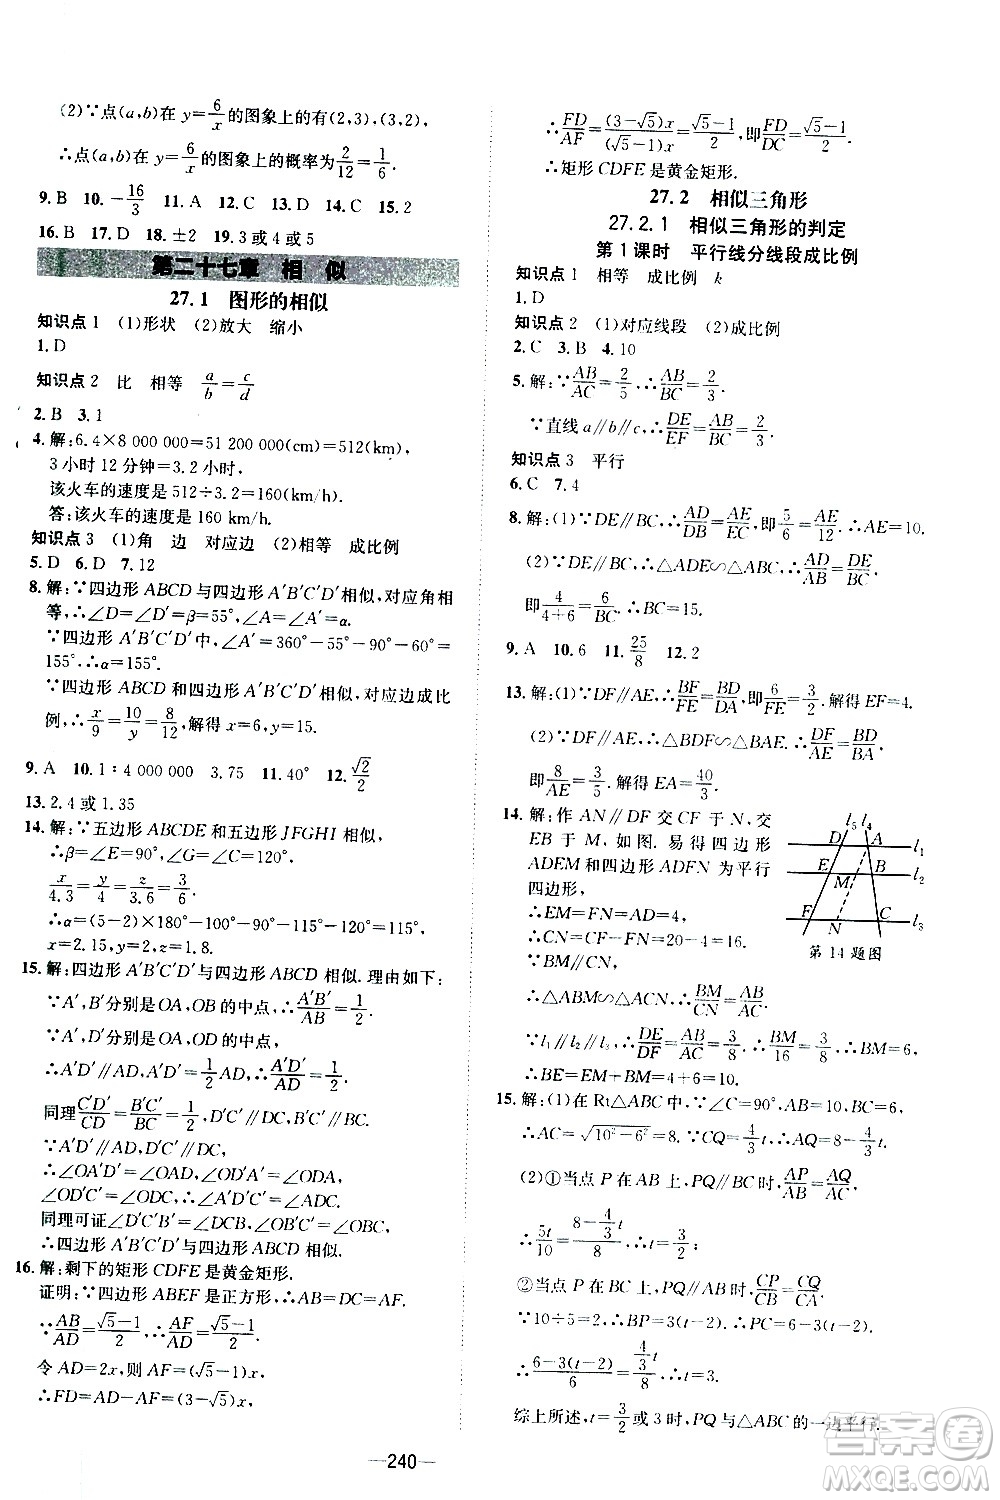 (2)∵点(a,b)在 y=6/x 的图象上的有(2,3),(3,2),
∴点(a,b)在 y=6/x 的图象上的概率为 2/12=1/6.
9.B 10.-16/3 11.A 12.C 13.D 14.C 15.2
16.B 17.D 18.±2 19.3 或 4 或 5
第二十七章 相 似
27.1 图形的相似
知识点 1 (1)形状 (2)放大 缩小
1.D
知识点 2 比 相等 a/b=c/d
2.B 3.1
4.解:6.4×8 000 000=51 200 000(cm)=512(km)
3 小时 12 分钟=3.2 小时,
该火车的速度是 512÷3.2=160(km/h)
答:该火车的速度是 160 km/h.
知识点 3 (1)角 边 对应边 (2)相等 成比例
5.D 6.D 7.12
8.解:∵四边形 ABCD 与四边形 A′B′C′D′相似,对应角相
等,∴∠D=∠D′=β=75°,∠A=∠A′=α.
∵四边形 A′B′C′D′中,∠A′=360°-55°-90°-60°=
155°,∴α=155°.
∵四边形 ABCD 和四边形 A′B′C′D′相似,对应边成比
例,∴x/9=10/y=8/12,解得 x=6,y=15.
9.A 10.1∶4 000 000 3.75 11.40° 12.√2/2
13.2.4 或 1.35
14.解:∵五边形 ABCDE 和五边形 JFGHI 相似,
∴β=∠E=90°,∠G=∠C=120°.
x/4.3=y/4=z/6=3/6
∴α=(5-2)×180°-90°-90°-115°-120°=125°,
x=2.15,y=2,z=1.8.
15.解:四边形 A′B′C′D′与四边形 ABCD 相似.理由如下:
∵A′,B′分别是 OA,OB 的中点,∴A′B′/AB=1/2.
∵A′,D′分别是 OA,OD 的中点,
∴A′D′∥AD,A′D′=1/2AD,∴A′D′/AD=1/2.
同理 C′D′/CD=B′C′/BC=1/2,D′C′∥DC,B′C′∥BC.
∵A′D′∥AD,D′C′∥DC,
∴∠OA′D′=∠OAD,∠OD′A′=∠ODA,
∠OD′C′=∠ODC,∴∠A′D′C′=∠ADC.
同理可证∠D′C′B′=∠DCB,∠C′B′O=∠OBC.
∴四边形 A′B′C′D′与四边形 ABCD 相似.
16.解:剩下的矩形 CDFE 是黄金矩形.
证明:∵四边形 ABEF 是正方形,∴AB=DC=AF.
∵AB/AD=(√5-1)/2,∴AF/AD=(√5-1)/2.
令 AD=2x,则 AF=(√5-1)x,
∴FD=AD-AF=(3-√5)x,
∴FD/AF=(3-√5)x/(√5-1)x=(√5-1)/2,即FD/DC=(√5-1)/2.
∴矩形 CDFE 是黄金矩形.
27.2 相似三角形
27.2.1 相似三角形的判定
第 1 课时 平行线分线段成比例
知识点 1 相等 成比例 k
1.D
知识点 2 (1)对应线段 (2)成比例
2.C 3.B 4.10
5.解:∵AB/AC=2/5,∴AB/BC=2/3.
∵直线 a∥b∥c,∴DE/EF=AB/BC=2/3.
知识点 3 平行
6.C 7.4
8.解:(1)∵DE∥BC,∴AD/AB=AE/EC,即5/6=AE/12.∴AE=10.
(2)∵DE∥BC,∴△ADE∽△ABC,∴AD/AB=DE/BC,
即4/(4+6)=6/BC.∴BC=15.
9.A 10.6 11.25/8 12.2
13.解:(1)∵DF∥AE,∴BF/FE=BD/DA=6/4=3/2.解得 EF=4.
(2)∵DF∥AE,∴△BDF∽△BAE.∴DF/AE=BD/BA,
即8/AE=3/5.解得 EA=40/3.
14.解:作 AN∥DF 交 CF 于 N,交
EB 于 M,如图.易得四边形
ADEM 和四边形 ADFN 为平行
四边形,
∴EM=FN=AD=4.
∴CN=CF-FN=20-4=16.
∵BM∥CN,
∴△ABM∽△ACN,∴BM/CN=AB/AC.
∵l₁∥l₂∥l₃,∴DE/DF=AB/AC=3/8,∴BM/16=3/8,∴BM=6,
∴BE=EM+BM=4+6=10.
l₅ l₄
D A l₁
E B l₂
M
F N C l₃
第 14 题图
15.解:(1)在 Rt△ABC 中,∵∠C=90°,AB=10,BC=6,
∴AC=√(10²-6²)=8.∵CQ=4/3t,∴AQ=8-4/3t.
(2)①当点 P 在 AB 上,PQ∥BC 时,AP/AB=AQ/AC,
∴5t/10=(8-4/3t)/8,∴t=3/2.
②当点 P 在 BC 上,PQ∥AB 时,CP/CB=CQ/CA,
∵10÷5=2,∴BP=3(t-2),∴CP=6-3(t-2).
∴(6-3(t-2))/6=(4/3t)/8,∴t=3.
综上所述,t=3/2或 3 时,PQ 与△ABC 的一边平行.
—240—
答案圈
MXQE.COM